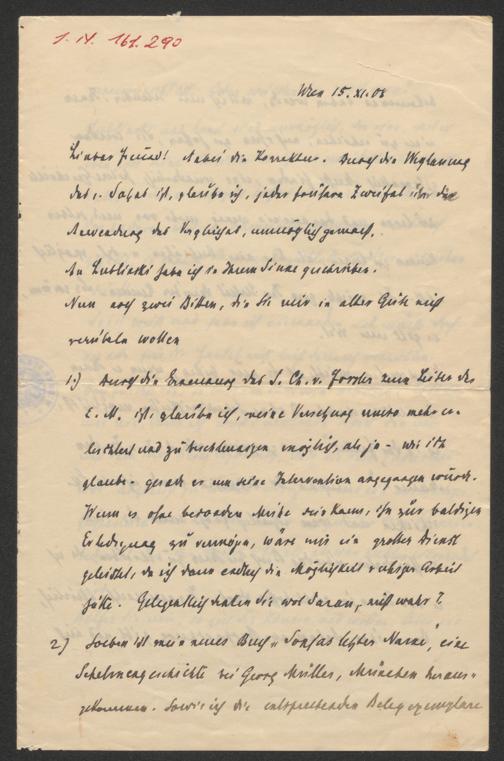 I. N. 161.290
Wien 15. XI. 08
Lieber Freund! Anbei die Korrektur. Durch die Weglassung
des 1. Satzes ist, glaube ich, jeder frühere Zweifel über die
Anwendung des Vergleichs, unmöglich gemacht.
An Lublinski habe ich in Ihrem Sinne geschrieben.
Nun noch zwei Bitten, die Sie mir in aller Güte nicht
verübeln wollen
1.) Durch die Ernennung des S. Ch. v. Forster zum Leiter des
E. M. ist, glaube ich, meine Versetzung umso mehr er-
leichtert und zu beschleunigen möglich, als ja - wie ich
glaube - gerade er um seine Intervention angegangen wurde.
Wenn es ohne besondere Mühe sein kann, ihn zur baldigen
Erledigung zu vermögen, wäre mir ein großer Dienst
geleistet, da ich dann endlich die Möglichkeit ruhiger Arbeit
hätte. Gelegentlich denken Sie wol daran, nicht wahr?
2) Soeben ist mein neues Buch „Sonjas letzter Name", eine
Schelmengeschichte bei Georg Müller, München heraus-
gekommen. Sowie ich die entsprechenden Belegexemplare